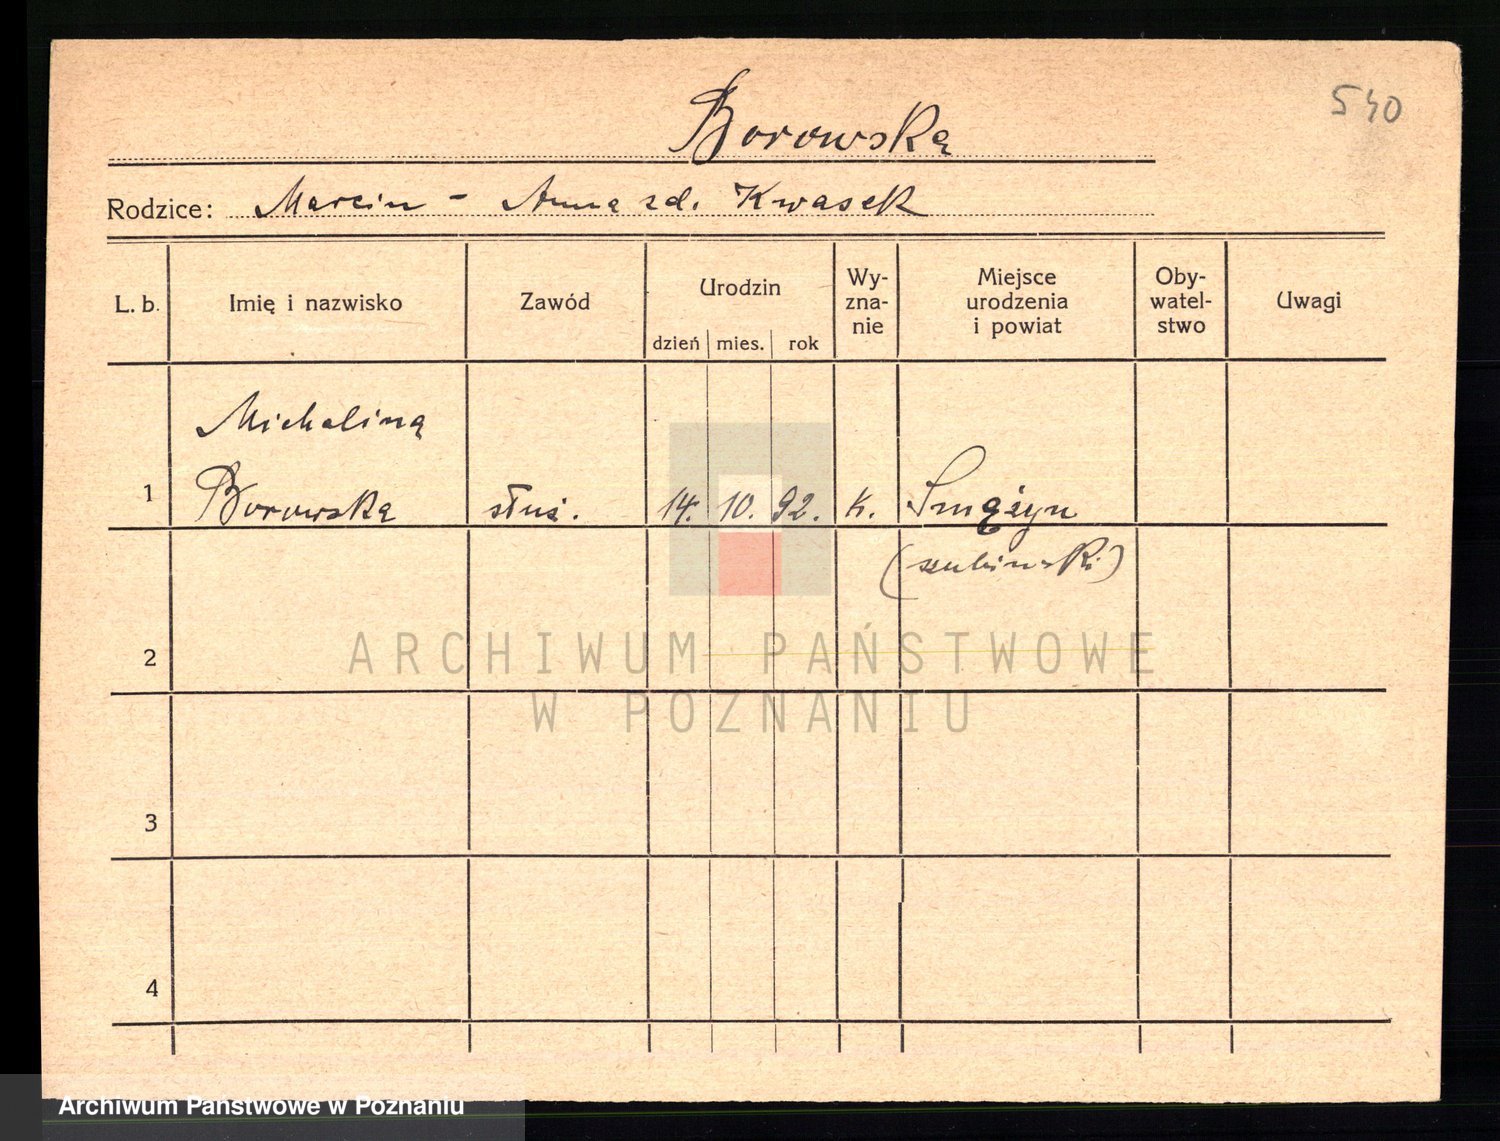 540
Borowska
Rodzice: Marcin - Anna zd. Kwasek
L. b.
Imię i nazwisko
Zawód
Urodzin
dzień mies. rok
Wy-
zna-
nie
Miejsce
urodzenia
i powiat
Oby-
watel-
stwo
Uwagi
Michalina
1 Borowska służ. 14. 10. 92. k. Smążyn
(szubiński)
2
ARCHIWUM PAŃSTWOWE
W POZNANIU
3
4
Archiwum Państwowe w Poznaniu